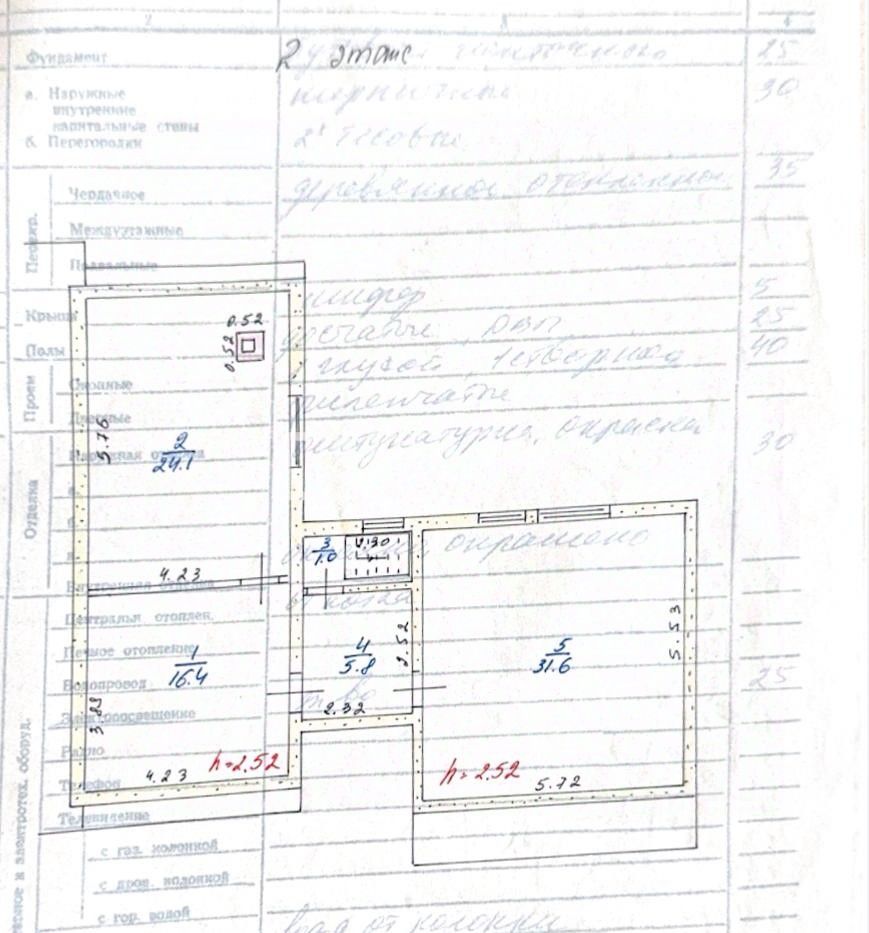 2 3 4
Фундамент 2 этаж 25
а. Наружные
внутренние
капитальные стены 30
б. Перегородки
Чердачное 35
Междуэтажные
Подвальные
Перекр.
Крыша шифер 5
Полы дощатые, ДВП 25
1 глухой, 1створная 40
Оконные
Дверные филенчатые
Проем
Наружная отделка штукатурка, окраска 30
а.
б.
Отделка
окрашено
Внутренняя отделка
Централья отоплен. от котла
Печное отопление
Водопровод 25
Электроосвещение
Радио
Телефон
Телевидение
с газ. колонкой
с дров. колонкой
с гор. водой вода от колонки
и электротех. оборуд.
0.52
0.52
5.76
2
24.1
4.23
3
1.0
1.30
1
16.4
3.88
4.23
h=2.52
4
5.8
2.52
2.32
5
31.6
5.53
h=2.52
5.72